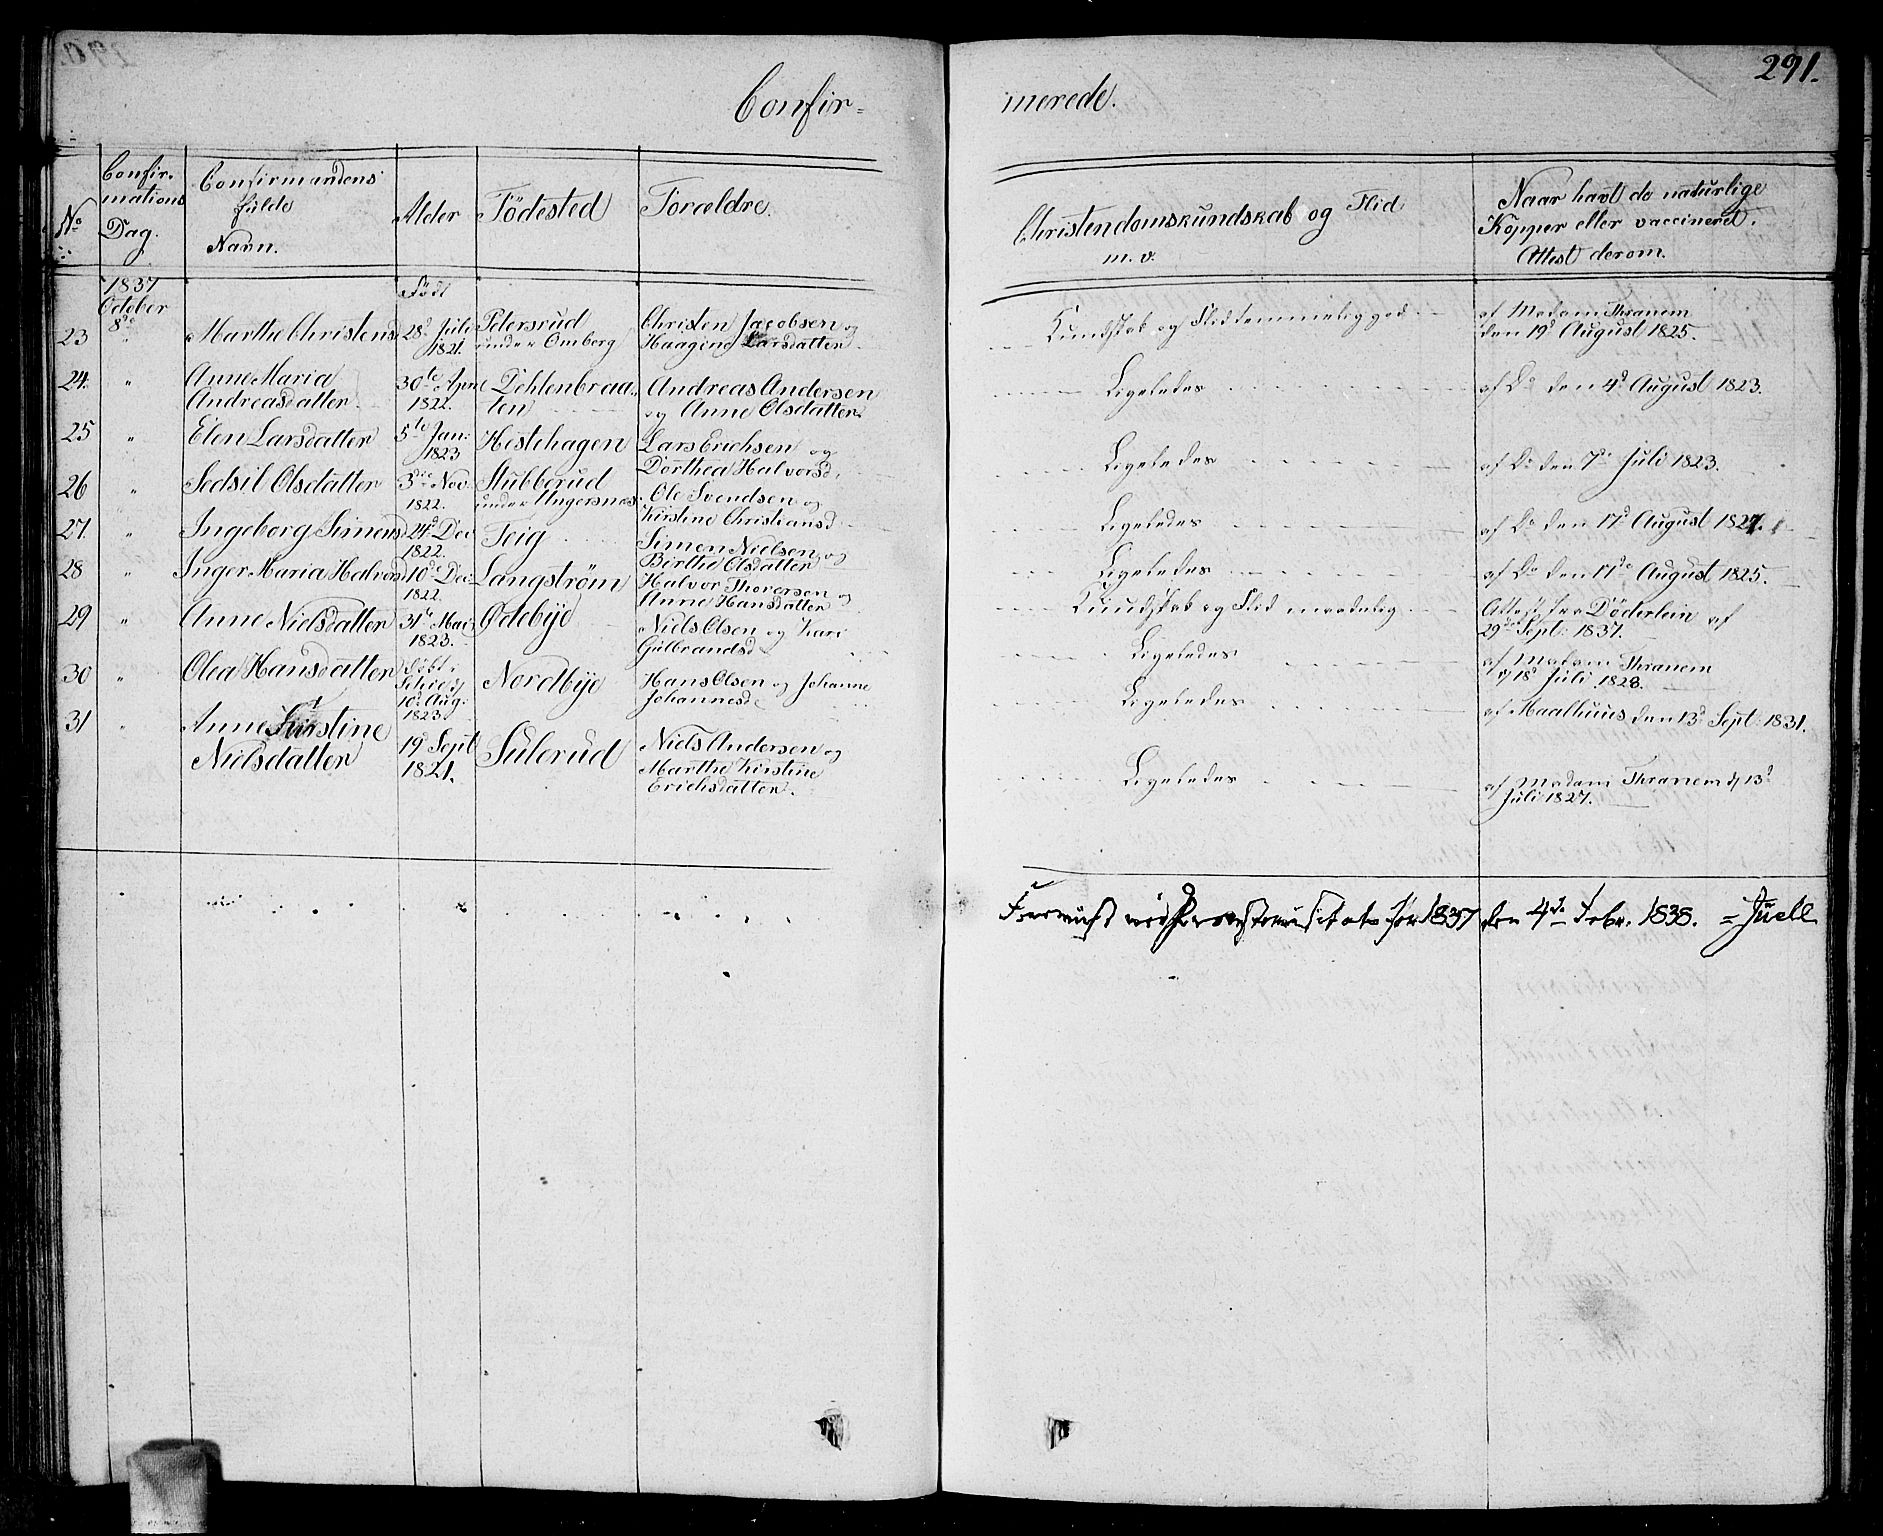 291.
Confir=
merede.
No
Confir-
mations
Dag.
Confirmandens
fulde
Navn.
Alder
Födested
Forældre.
Christendomskundskab og Flid
m. v.
Naar havt de naturlige
Kopper eller vaccineret.
Attest derom.
1837
October
8de
23 " Marthe Christens
Födt
28d Juli
1821.
Petersrud
under Omberg
Christen Jacobsen og
Haagine Larsdatter
Kundskab og Flid temmelig god
af Madam Thranem
den 19d August 1825.
24. " Anne Maria
Andreasdatter
30te April
1822.
Dehlenbraa-
ten
Andreas Andersen
og Anne Olsdatter
Ligeledes
af Do den 4d August 1823.
25 " Elen Larsdatter
5te Jan:
1823
Hestehagen
Lars Erichsen og
Dorthea Halvorsd.
Ligeledes
af Do den 7de Juli 1823.
26 " Sedsil Olsdatter
3die Nov.
1822.
Stubberud
under Ungersnæs.
Ole Svendsen og
Kirstine Christiansd
Ligeledes
af Do den 17d August 182
27. " Ingeborg Simensd
24d Dec
1822.
Teig
Simen Nielsen og
Birthe Olsdatter
Ligeledes
af Do den 17de August 1825.
28 " Inger Maria Halvorsd
10de Dec:
1822.
Langström
Halvor Thoresen og
Anne Hansdatter
Kundskab og Flid maadelig
Attest fra Döderlein af
29de Sept: 1837.
29 " Anne Nielsdatter
31te Mai
1823.
Ödebye
Niels Olsen og Kari
Gulbrandsd
Ligeledes
af Madam Thranem
18d Juli 1828.
30 " Olea Hansdatter
Döbt i
10d Aug:
1823.
Nordbye
Hans Olsen og Johanne
Johannesd
Ligeledes
af Maalhuus den 13d Sept: 1831.
31 " Anne Kirstine
Nielsdatter
19d Sept
1821.
Sulerud
Niels Andersen og
Marthe Kirstine
Erichsdatter.
Ligeledes
af Madam Thranem d 13d
Juli 1827.
Fremviist ved Provstevisitats for 1837 den 4de Febr. 1838. = Juell